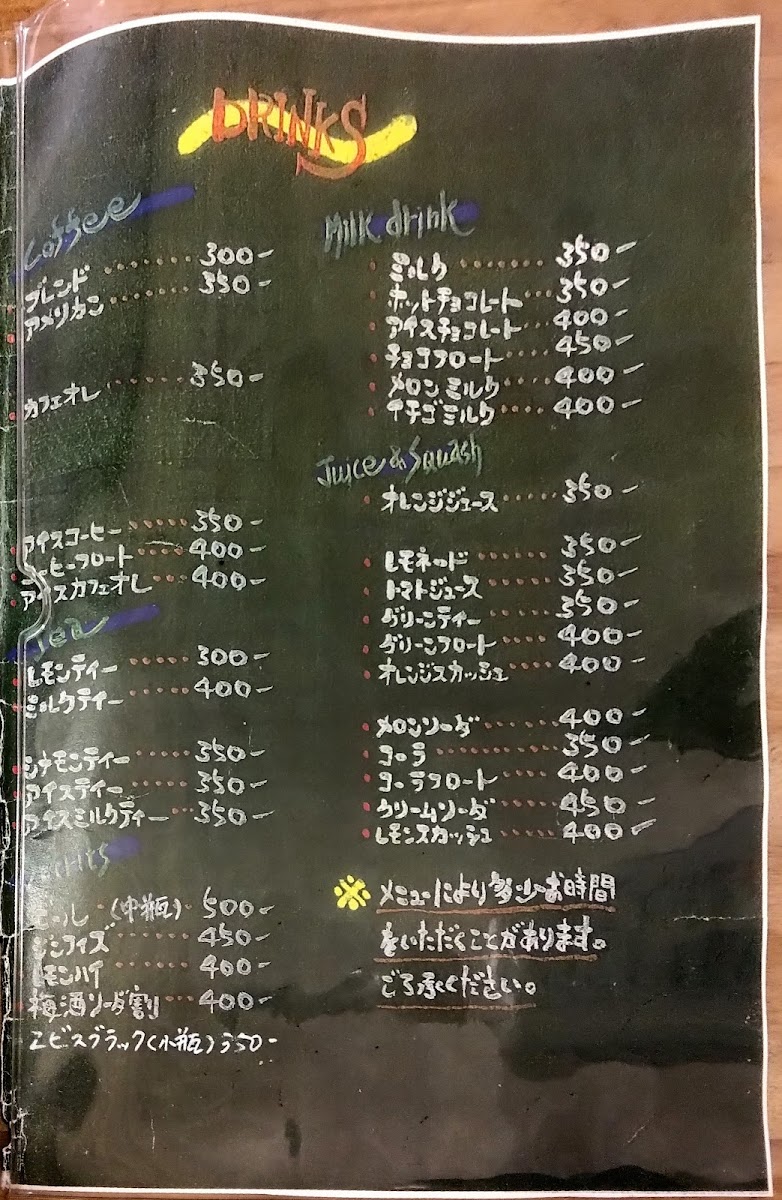 DRINKS
Coffee
ブレンド ········ 300-
アメリカン ········ 350-
カフェオレ ········ 350-
アイスコーヒー ······ 350-
ーヒーフロート ····· 400-
アイスカフェオレ ···· 400-
Tea
レモンティー ······ 300-
ミルクティー ······ 400-
シナモンティー ····· 350-
アイスティー ······ 350-
アイスミルクティー ··· 350-
ビール (中瓶) 500-
ジンフィズ ······ 450-
レモンハイ ······ 400-
梅酒ソーダ割 ···· 400-
エビスブラック(小瓶) 550-
Milk drink
ミルク ········ 350-
ホットチョコレート ··· 350-
アイスチョコレート ··· 400-
チョコフロート ···· 450-
メロンミルク ···· 400-
イチゴミルク ···· 400-
Juice & Squash
オレンジジュース ····· 350-
レモネード ······ 350-
トマトジュース ····· 350-
グリーンティー ····· 350-
グリーンフロート ···· 400-
オレンジスカッシュ ··· 400-
メロンソーダ ······ 400-
コーラ ······ 350-
コーラフロート ···· 400-
クリームソーダ ···· 450-
レモンスカッシュ ···· 400-
※ メニューにより多少お時間
をいただくことがあります。
ご了承ください。